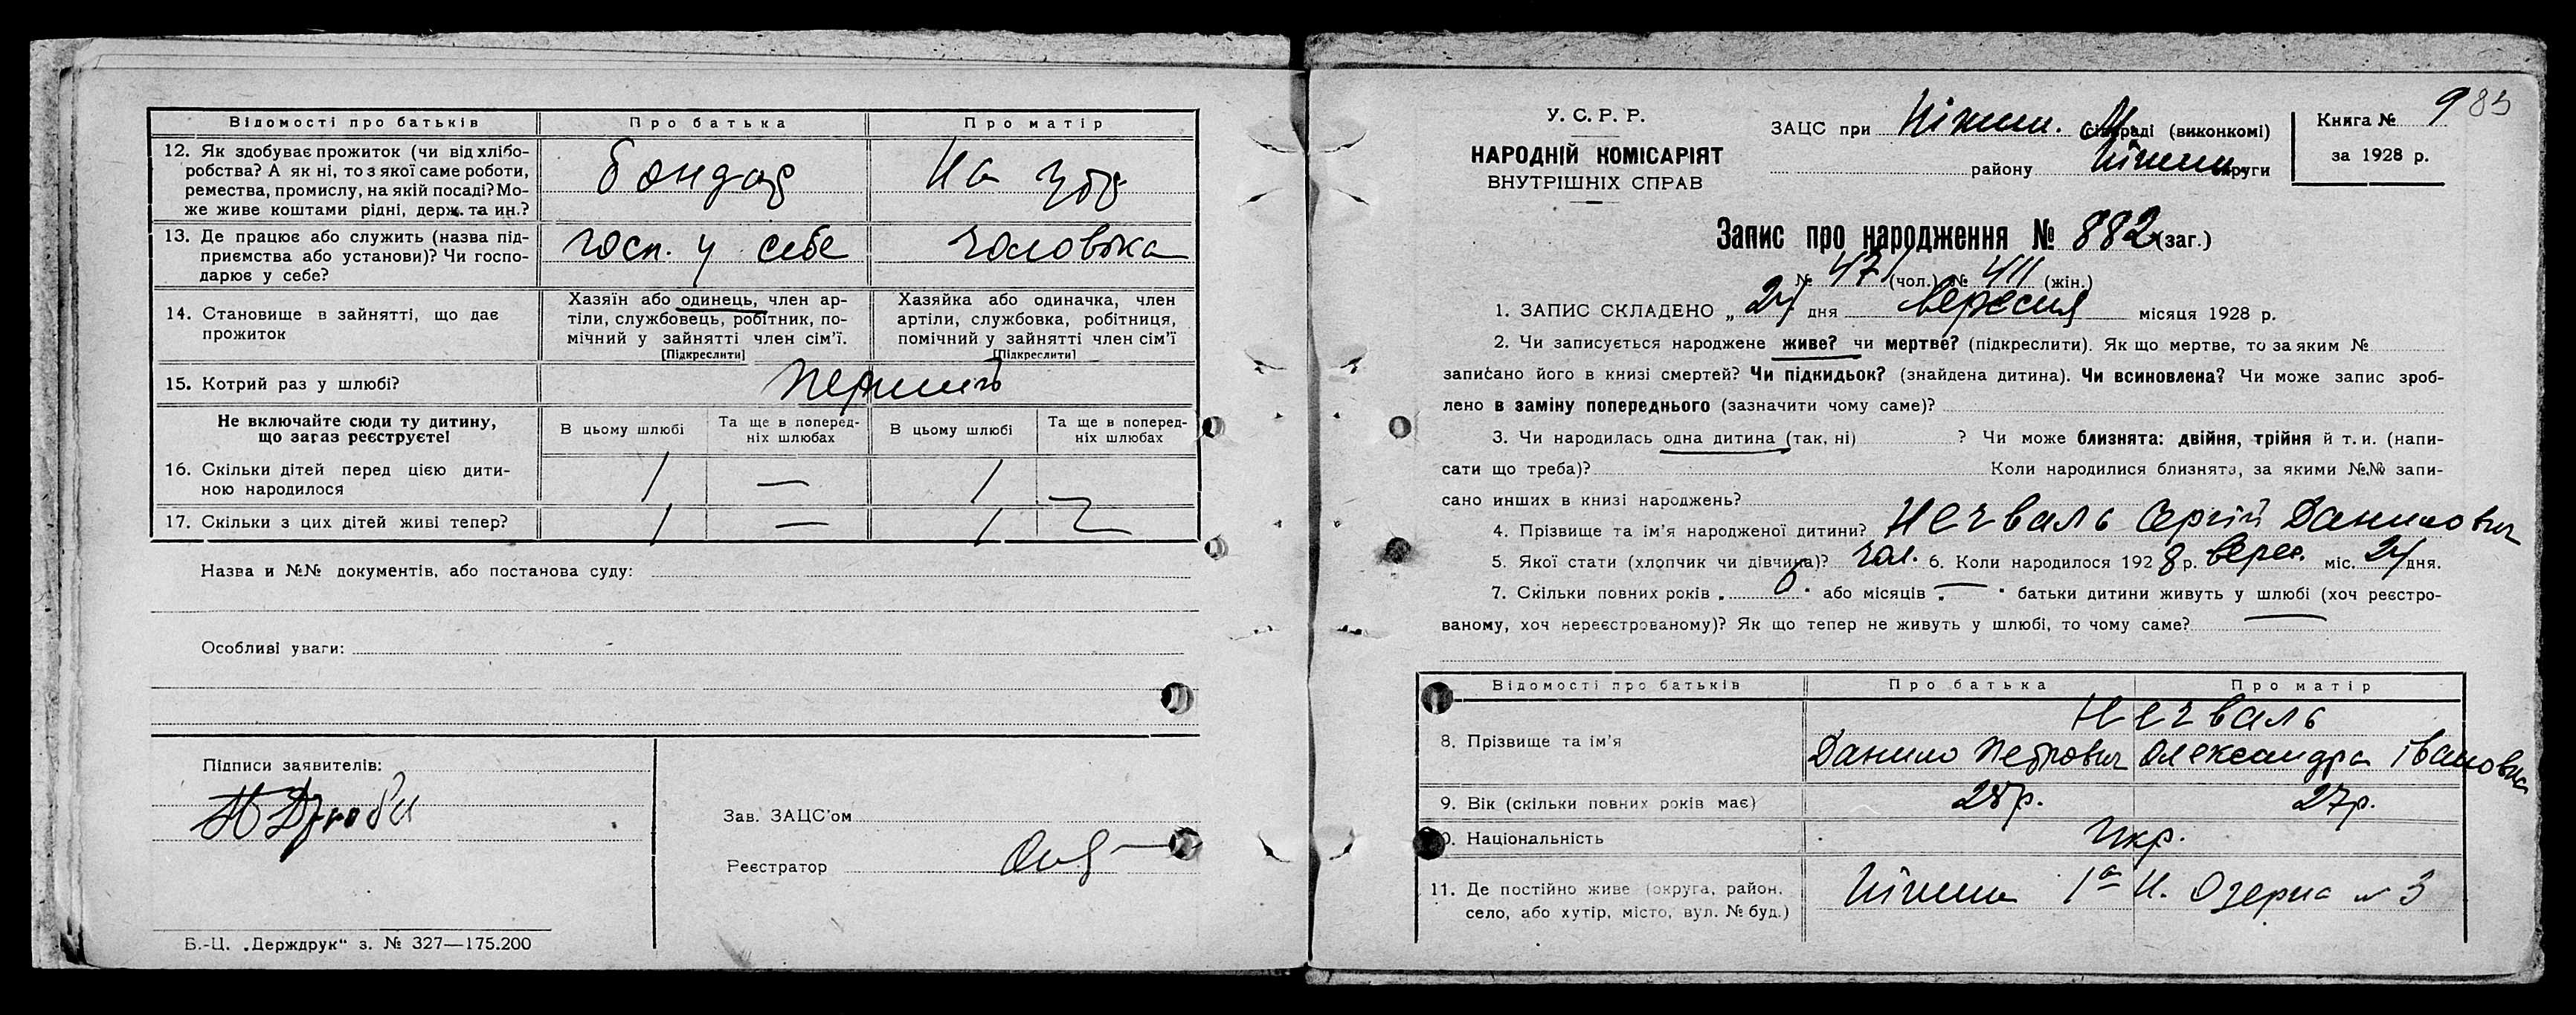 Відомості про батьків
Про батька
Про матір
12. Як здобуває прожиток (чи від хлібо-
робства? А як ні, то з якої саме роботи,
ремества, промислу, на якій посаді? Мо-
же живе коштами рідні, держ. та ин.?
бондар
На утр
13. Де працює або служить (назва під-
приємства або установи)? Чи госпо-
дарює у себе?
госп. у себе
чоловіка
14. Становище в зайнятті, що дає
прожиток
Хазяїн або одинець, член ар-
тіли, службовець, робітник, по-
мічний у зайнятті член сім'ї.
[Підкреслити]
Хазяйка або одиначка, член
артіли, службовка, робітниця,
помічний у зайнятті член сім'ї
[Підкреслити]
15. Котрий раз у шлюбі?
Не включайте сюди ту дитину,
що зараз реєструєте!
В цьому шлюбі
Та ще в поперед-
ніх шлюбах
В цьому шлюбі
Та ще в поперед-
ніх шлюбах
16. Скільки дітей перед цією дити-
ною народилося
1 — 1
17. Скільки з цих дітей живі тепер?
1 — 1
Назва и №№ документів, або постанова суду:
Особливі уваги:
Підписи заявителів:
Зав. ЗАЦС'ом
Реєстратор
Б.-Ц. „Держдрук“ з. № 327—175.200
У. С. Р. Р.
НАРОДНІЙ КОМІСАРІЯТ
ВНУТРІШНІХ СПРАВ
ЗАЦС при Ніжин. сільраді (виконкомі)
району Ніжин. округи
Книга № 9
за 1928 р.
83
Запис про народження № 882 (заг.)
№ 471 (чол.) № 411 (жін.)
1. ЗАПИС СКЛАДЕНО „24 дня вересня місяця 1928 р.
2. Чи записується народжене живе? чи мертве? (підкреслити). Як що мертве, то за яким №
записано його в книзі смертей? Чи підкидьок? (знайдена дитина). Чи всиновлена? Чи може запис зроб-
лено в заміну попереднього (зазначити чому саме)?
3. Чи народилась одна дитина (так, ні) ? Чи може близнята: двійня, трійня й т. и. (напи-
сати що треба)? Коли народилися близнята, за якими №№ запи-
сано инших в книзі народжень?
4. Прізвище та ім'я народженої дитини? Нечваль Сергій Данилович
5. Якої стати (хлопчик чи дівчина)? чол. 6. Коли народилося 1928 р. верес. міс. 24 дня.
7. Скільки повних років „ 6 “ або місяців „ — “ батьки дитини живуть у шлюбі (хоч реєстро-
ваному, хоч нереєстрованому)? Як що тепер не живуть у шлюбі, то чому саме?
Відомості про батьків
Про батька
Про матір
8. Прізвище та ім'я
Нечваль
Данило Петрович
Олександра Івановна
9. Вік (скільки повних років має)
28р.
27р.
10. Національність
Укр.
11. Де постійно живе (округа, район,
село, або хутір, місто, вул. № буд.)
Ніжин 1а Н. Озерна № 3